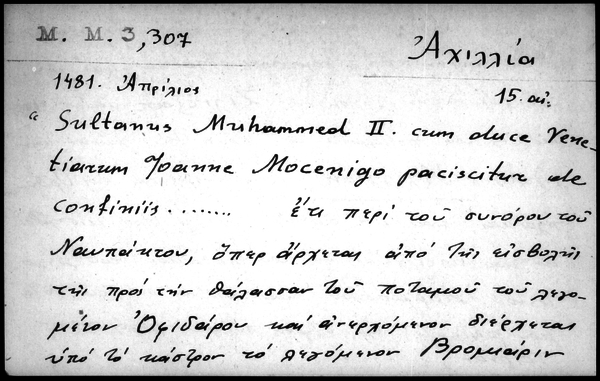 M. M. 3,307
Ἀχιλλία
1481. Ἀπρίλιος
15. αἰ.
"Sultanus Muhammed II. cum duce Vene-
tiarum Joanne Mocenigo paciscitur de
confiniis ........ ἔτι περί τοῦ συνόρου τοῦ
Ναυπάκτου, ὅπερ ἄρχεται ἀπό τῆς εἰσβολῆς
τῆς πρός τήν θάλασσαν τοῦ ποταμοῦ τοῦ λεγο-
μένου Ὀφιδάρου καί ἀνερχόμενον διέρχεται
ὑπό τό κάστρον τό λεγόμενον Βρομιάριν